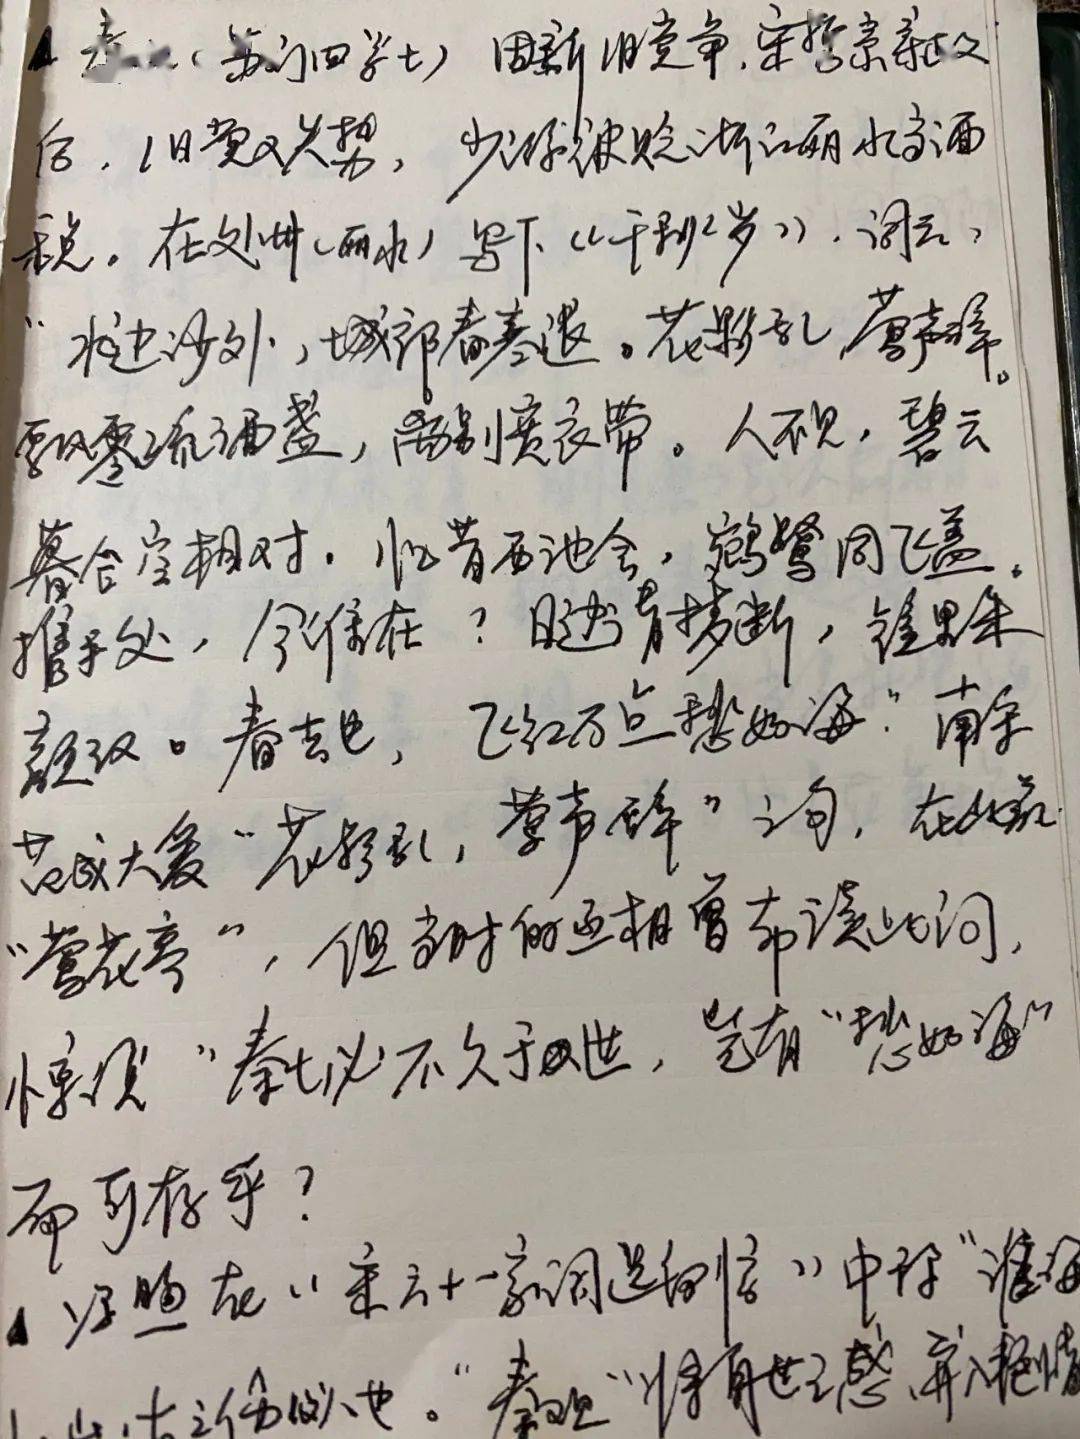 （苏门四学士）因新旧党争，宋哲宗亲政
后，旧党又失势，少游被贬浙江丽水京酒
税。在处州（丽水）写下《千秋岁》，词云，
“水边沙外，城郭春寒退。花影乱，莺声碎。
飘零疏酒盏，离别宽衣带。人不见，碧云
暮合空相对。忆昔西池会，鹓鹭同飞盖。
携手处，今谁在？日边清梦断，镜里朱
颜改。春去也，飞红万点愁如海。”南宋
范成大爱“花影乱，莺声碎”之句，在此
“莺花亭”，但当时的丞相曾布读此词，
惊“秦七必不久于世，岂有“愁如海”
而可存乎？
冯煦在《宋六十一家词选例言》中称“淮海
古之伤心人也。”秦观“将身世之感，并入艳情